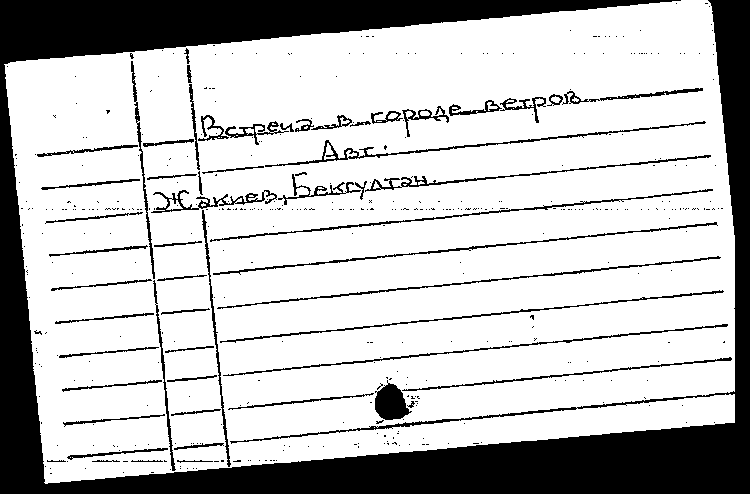 Встреча в городе ветров
Авт.:
Жакиев, Бексултан.